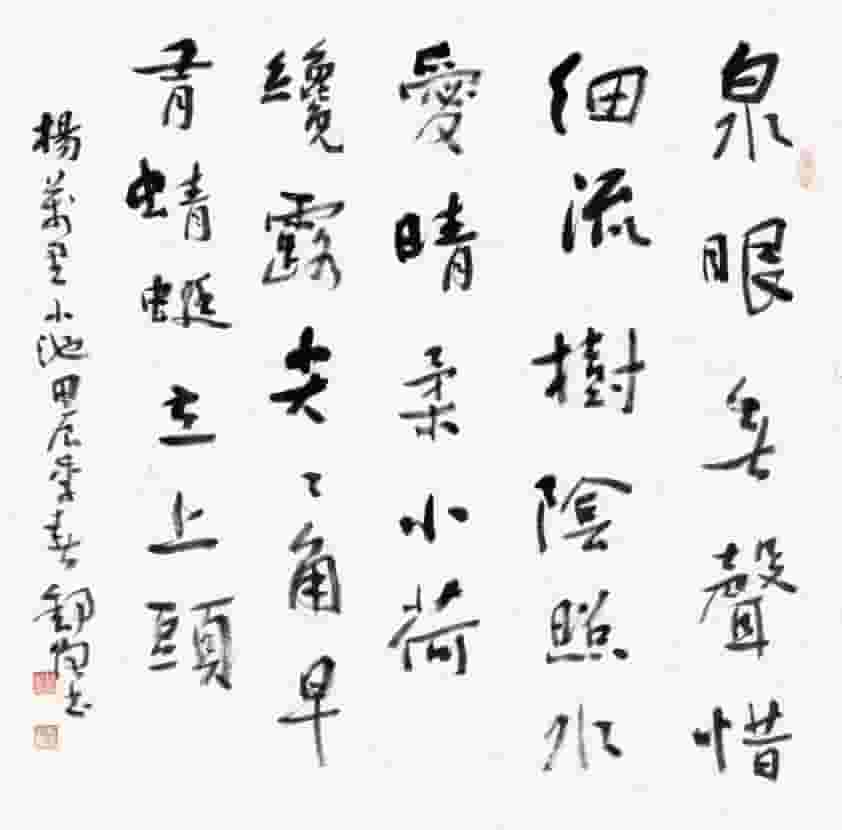 泉眼無聲惜
細流樹陰照水
愛晴柔小荷
纔露尖々角早
有蜻蜓立上頭
楊萬里小池甲辰季春